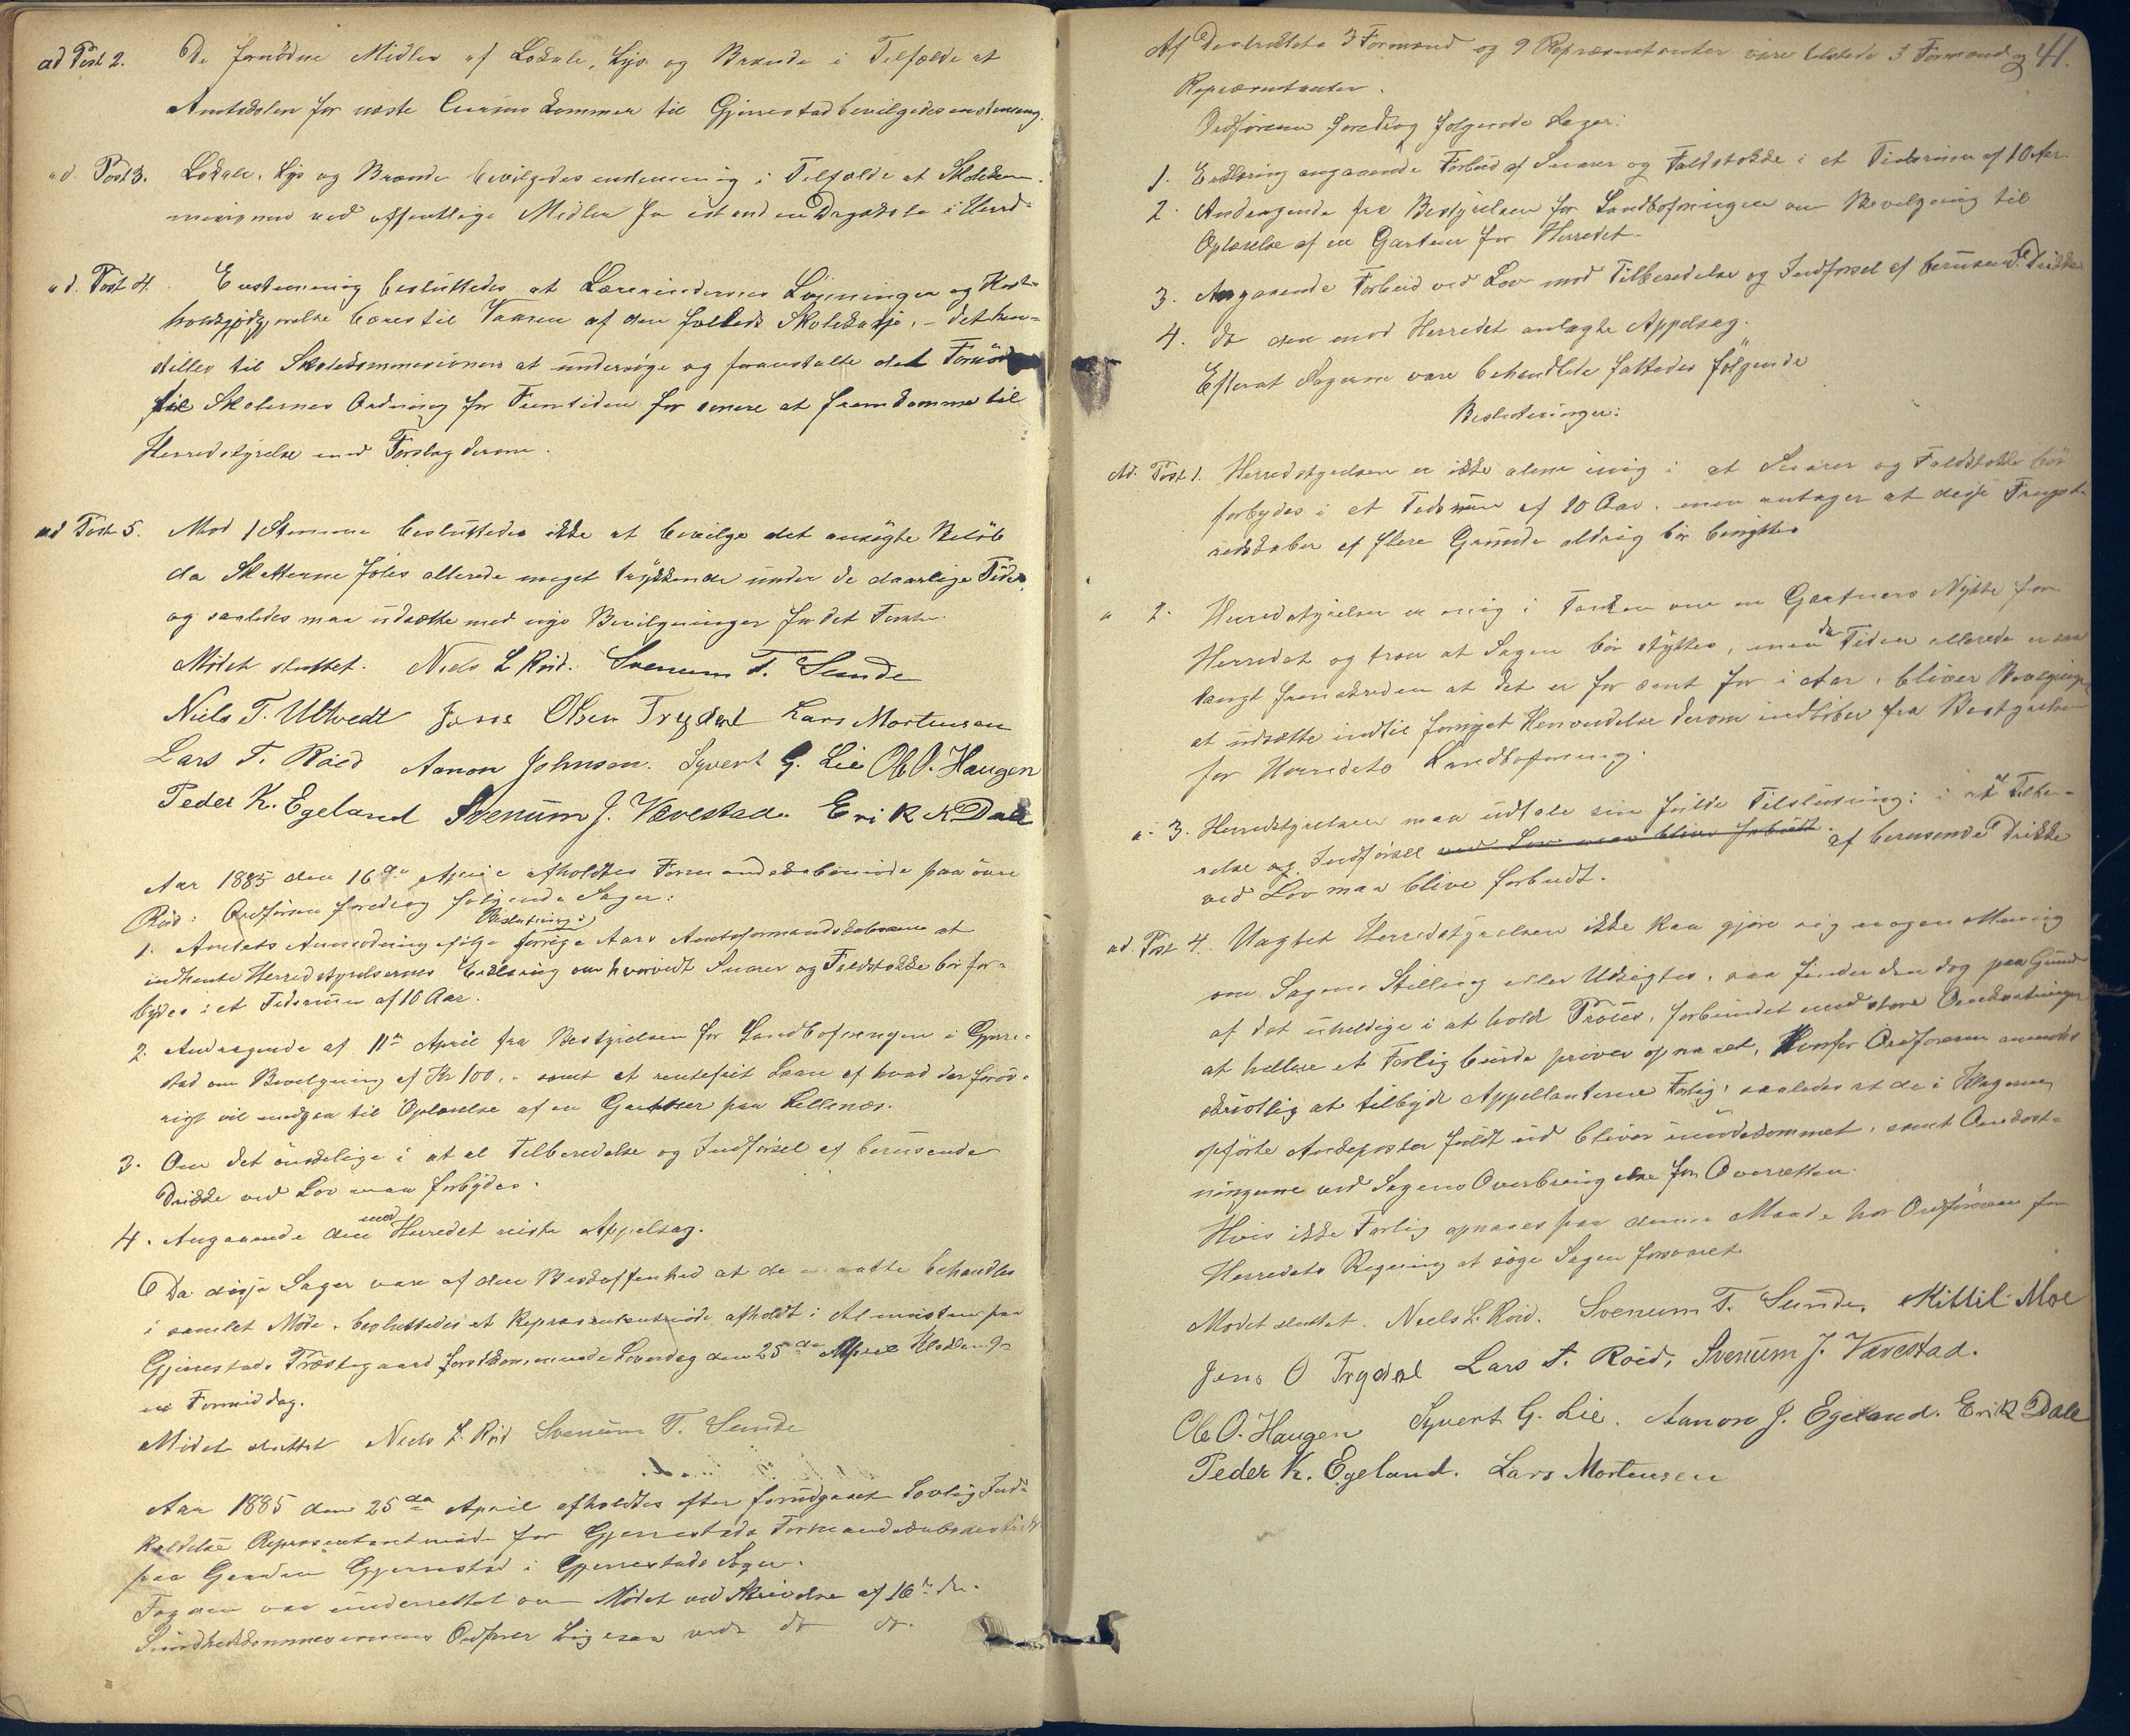 ad Post 2. De fornödne Midler af Lokale, Lys og Brænde i Tilfælde at
Amtsskolen for næste Cursus kommer til Gjerrestad bevilgedes enstemmig.
ad. Post 3. Lokale, Lys og Brænde bevilgedes enstemmig i Tilfælde at Skolekom-
misionen ved offentlige Midler faar istand en Dagskole i Herred-
ad. Post 4. Enstemmig besluttedes at Lærerindernes Lönninger og Kost-
holdsgodtgjørelse bæres til Vaaren af den fælleds Skolekasse, – det hen-
stilles til Skolekommisionens at undersöge og foranstalte det Fornödne
til Skolernes Ordning for Fremtiden for senere at fremkomme til
Herredstyrelse med Forslag derom.
ad Post 5. Mod 1 Stemme besluttedes ikke at bevilge det ansögte Belöb
da Skatterne föles allerede meget trykkende under de daarlige Tider,
og saaledes maa udsætte med nye Bevilgninger for det Förste.
Mödet sluttet. Niels L Röid. Svenum T. Sunde
Niels T. Ultvedt Jens Olsen Trydal Lars Mortensen
Lars T. Röed Aanon Johnsen. Syvert G. Lie Ole O. Haugen
Peder K. Egeland Svenum J. Vævestad. Erik K Dale
Aar 1885 den 16de April afholdtes Formandskabsmöde paa övre
Röid: Ordföreren foredrog fölgende Sager:
1. Amtets Anmodning ifölge forrige Aars Amtsformandskabs Beslutning at
indhente Herredstyrelsernes Erklæring om hvorvidt Snarer og Faldstokke bör for-
bydes i et Tidsrum af 10 Aar.
2. Andragende af 11te April fra Bestyrelsen for Landboforeningen i Gjerre-
stad om Bevilgning af Kr 100,- samt et rentefrit Laan af hvad der foröv-
rigt vil medgaa til Oplærelse af en Gartner paa Lillenæs.
3. Om det önskelige i at al Tilberedelse og Indförsel af berusende
Drikke ved Lov maa forbydes.
4. Angaaende den mod Herredet reiste Appelsag.
Da disse Sager vare af den Beskaffenhed at de maatte behandles
i samlet Möde, besluttedes et Repræsentantmöde afholdt i Almuestuen paa
Gjerrestads Præstegaard förstkommende Löverdag den 25de April Klokken 9
om Formiddag.
Mödet sluttet Niels L. Röid Svenum T. Sunde
Aar 1885 den 25de April afholdtes efter forudgaaet Lovlig Ind-
kaldelse Repræsentantmöde for Gjerrestads Formandskabsdistrikt
paa Gaarden Gjerrestad i Gjerrestads Sogn.
Fogden var underrettet om Mödet ved Skrivelse af 16de ds.
Sundhedskommisionens Ordförer ligesaa ved do do.
41.
Af Destriktets 3 Formænd og 9 Repræsentanter vare tilstede 3 Formænd og
Repræsentanter.
Ordföreren foredrog folgende Sager:
1. Erklæring angaaende Forbud af Snarer og Faldstokke i et Tidsrum af 10 Aar.
2. Andragende fra Bestyrelsen for Landboforeningen om Bevilgning til
Oplærelse af en Gartner for Herredet.
3. Angaaende Forbud ved Lov mod Tilberedelse og Indförsel af berusende Drikke
4. do den mod Herredet anlagte Appelsag.
Efterat Sagerne vare behandlede fattedes fölgende
Beslutninger:
Ad. Post 1. Herredstyrelsen er ikke alene enig i at Snarer og Faldstokke bör
forbydes i et Tidsrum af 10 Aar, men antager at disse Fangst-
redskaber af flere Grunde aldrig bör benyttes
" 2. Herredstyrelsen er enig i Tanken om en Gartners Nytte for
Herredet og tror at Sagen bör stöttes, men da Tiden allerede er saa
langt fremskreden at det er for sent for i Aar, bliver Bevilgningen
at udsætte indtil fornyet Henvendelse derom indlöber fra Bestyrelsen
for Herredets Landboforening.
" 3. Herredstyrelsen maa udtale sin fulde Tilslutning: i at al Tilbe-
relse og Indförsel ved Lov maa blive forbudt af berusende Drikke
ved Lov maa blive forbudt.
ad. Post 4. Uagtet Herredstyrelsen ikke kan gjöre sig nogen Mening
om Sagens Stilling eller Udsigter, saa finder den dog paa Grund
af det uheldige i at holde Proces, forbundet med store Omkostninger
at hellere et Forlig burde pröves opnaaet, Hvorfor Ordföreren anmodes
skriftlig at tilbyde Appellanterne Forlig: saaledes at de i Klagerne
opförte Ankeposter fuldt ud bliver imödekommet, samt Omkost-
ningerne ved Sagens Overbringelse for Overretten.
Hvis ikke Forlig opnaaes paa denne Maade har Ordföreren for
Herredets Regning at söge Sagen forsvaret
Mödet sluttet. Niels L. Röid. Svenum T. Sunde, Kittil Moe
Jens O Trydal Lars T. Röed, Svenum J. Vævestad.
Ole O. Haugen Syvert G. Lie. Aanon J. Egeland. Erik Dale
Peder K. Egeland. Lars Mortensen